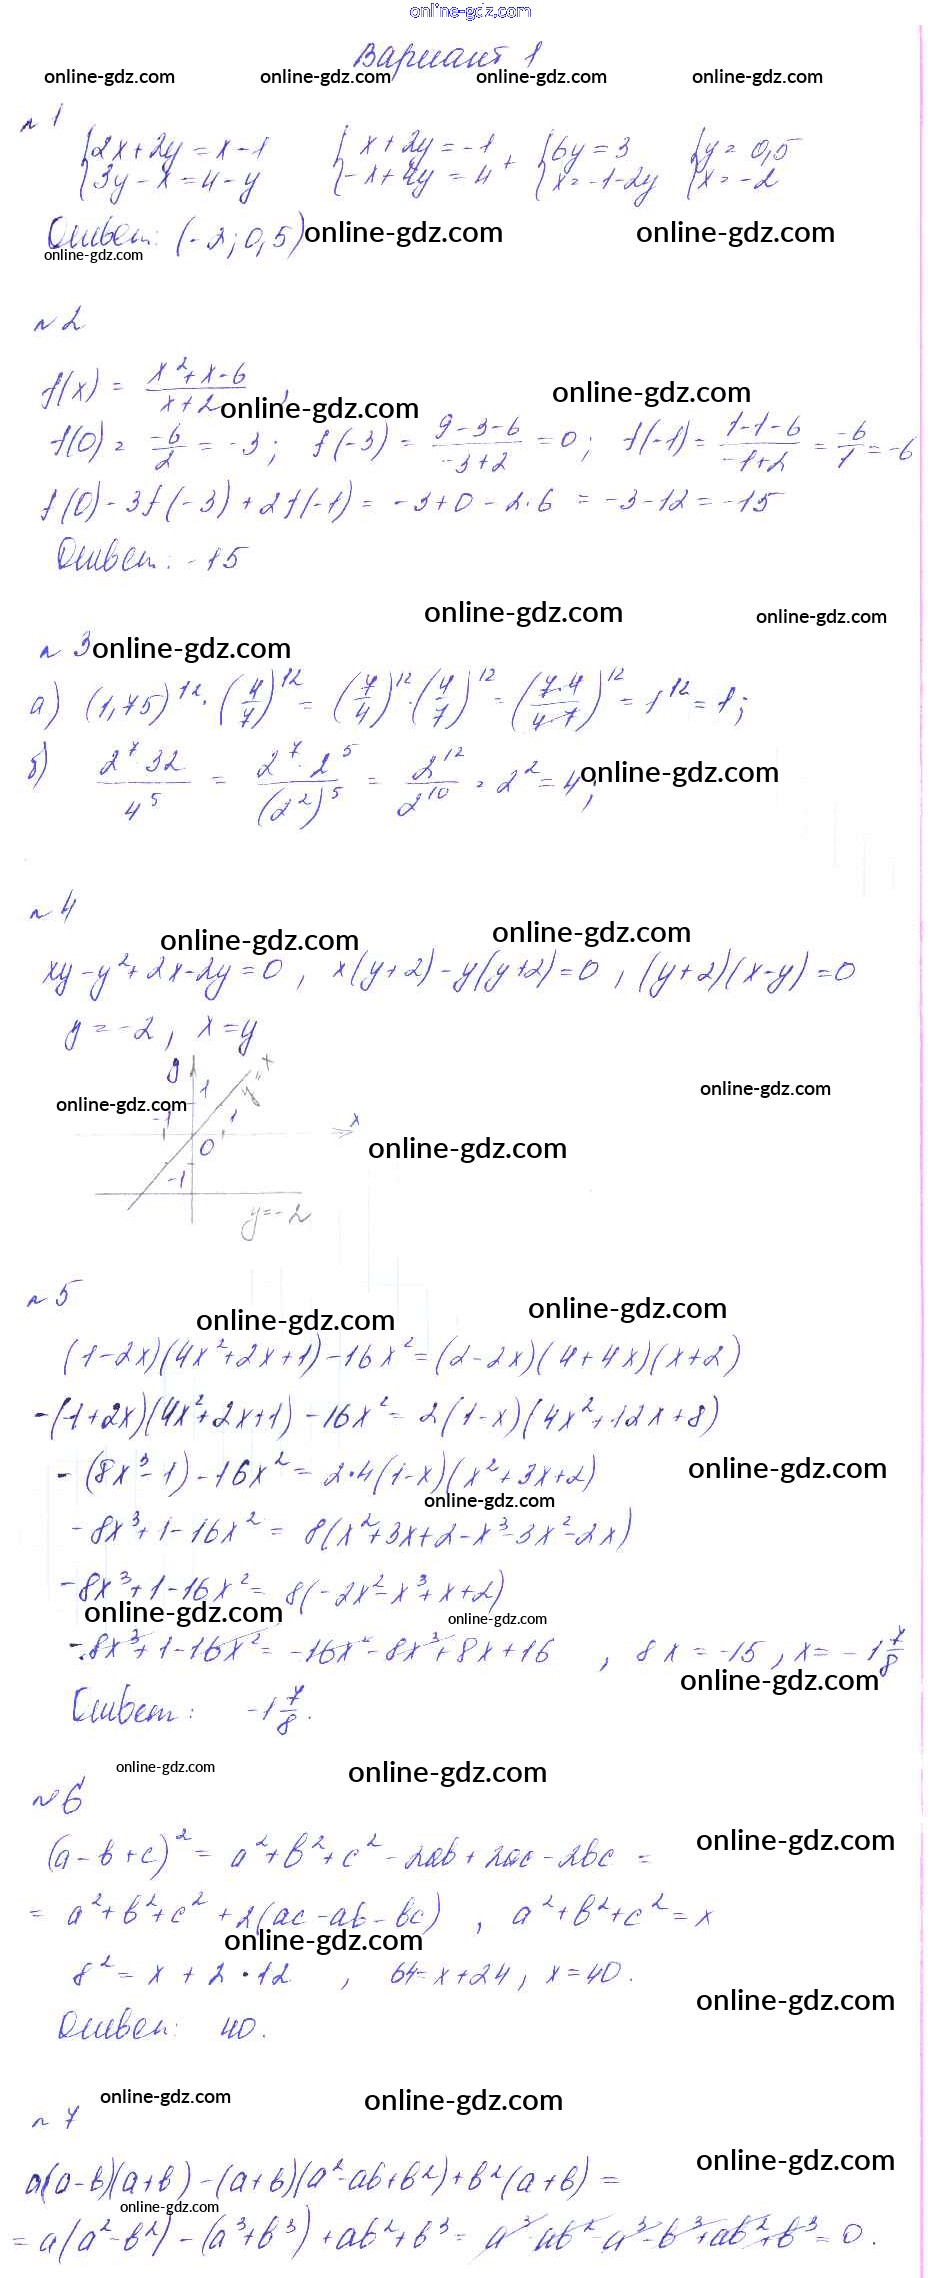 online-gdz.com
Вариант 1
online-gdz.com online-gdz.com online-gdz.com online-gdz.com
№ 1
{2x+2y=x-1 {x+2y=-1 {6y=3 {y=0,5
{3y-x=4-y {-x+4y=4 + {x=-1-2y {x=-2
Ответ: (-2; 0,5) online-gdz.com online-gdz.com
online-gdz.com
№ 2
f(x) = (x²+x-6)/(x+2), online-gdz.com online-gdz.com
f(0) = -6/2 = -3; f(-3) = (9-3-6)/(-3+2) = 0; f(-1) = (1-1-6)/(-1+2) = -6/1 = -6
f(0)-3f(-3)+2f(-1) = -3+0-2·6 = -3-12 = -15
Ответ: -15
online-gdz.com online-gdz.com
№ 3 online-gdz.com
а) (1,75)¹²·(4/7)¹² = (7/4)¹²·(4/7)¹² = (7·4/4·7)¹² = 1¹² = 1;
б) (2⁷ 32)/4⁵ = (2⁷·2⁵)/(2²)⁵ = 2¹²/2¹⁰ = 2² = 4; online-gdz.com
№ 4
online-gdz.com online-gdz.com
xy-y²+2x-2y=0, x(y+2)-y(y+2)=0, (y+2)(x-y)=0
y=-2, x=y
y 1 y=x
online-gdz.com online-gdz.com
-1 1 x
0 online-gdz.com
-1
y=-2
№ 5
online-gdz.com online-gdz.com
(1-2x)(4x²+2x+1)-16x²=(2-2x)(4+4x)(x+2)
-(-1+2x)(4x²+2x+1)-16x²=2(1-x)(4x²+12x+8)
-(8x³-1)-16x²=2·4(1-x)(x²+3x+2) online-gdz.com
online-gdz.com
-8x³+1-16x²=8(x²+3x+2-x³-3x²-2x)
-8x³+1-16x²=8(-2x²-x³+x+2)
online-gdz.com online-gdz.com
-8x³+1-16x²=-16x²-8x³+8x+16, 8x=-15, x=-1 7/8
online-gdz.com
Ответ: -1 7/8.
online-gdz.com online-gdz.com
№ 6
online-gdz.com
(a-b+c)²=a²+b²+c²-2ab+2ac-2bc=
=a²+b²+c²+2(ac-ab-bc), a²+b²+c²=x
online-gdz.com
8²=x+2·12, 64=x+24, x=40.
online-gdz.com
Ответ: 40.
online-gdz.com online-gdz.com
№ 7
online-gdz.com
a(a-b)(a+b)-(a+b)(a²-ab+b²)+b²(a+b)=
online-gdz.com
=a(a²-b²)-(a³+b³)+ab²+b³=a³-ab²-a³-b³+ab²+b³=0.